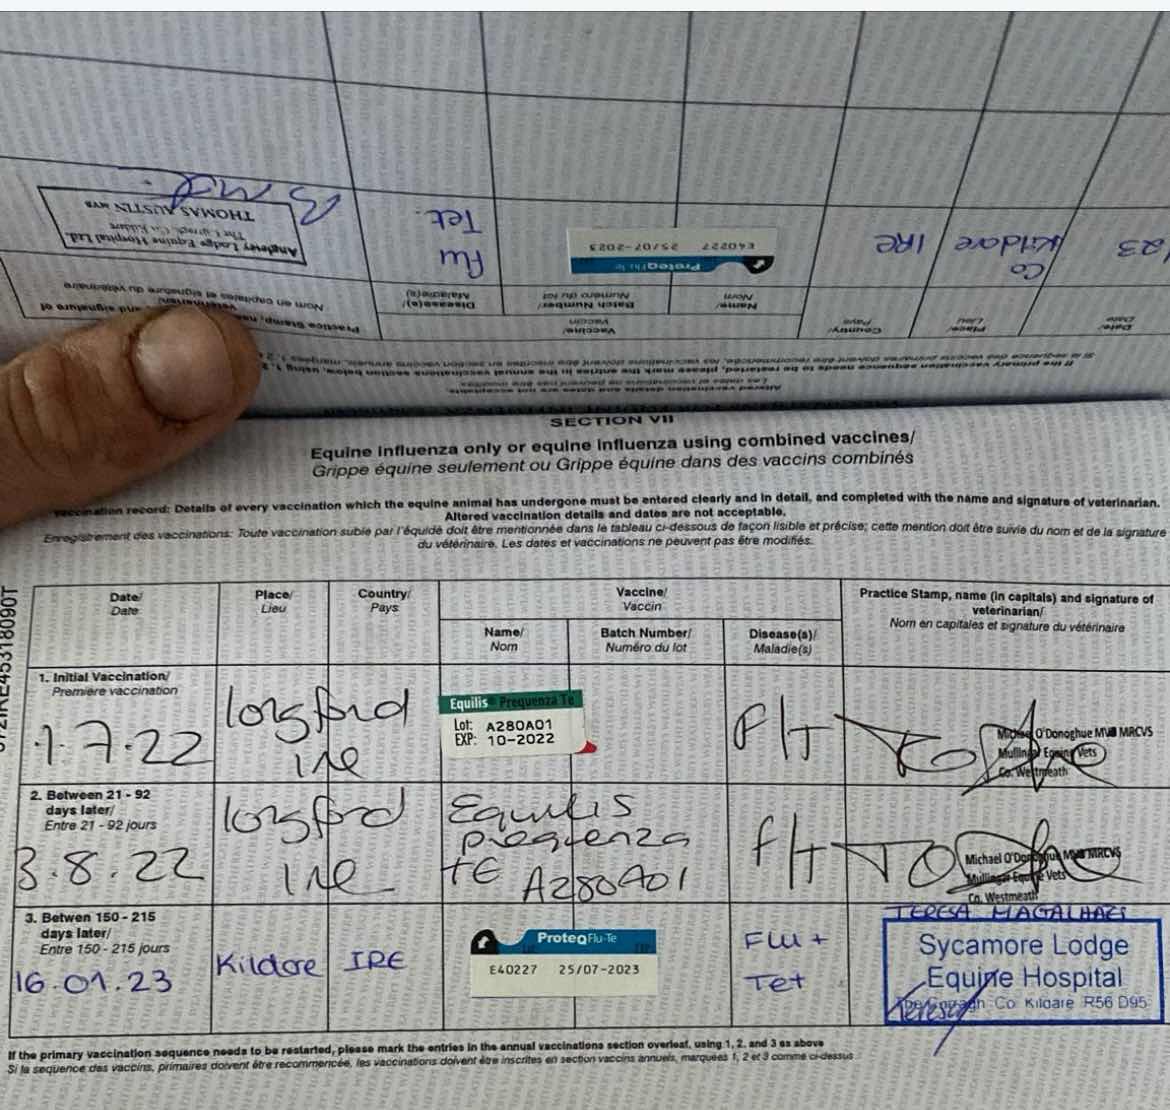 Altered vaccination details and dates are not acceptable.
Les dates et vaccinations ne peuvent pas être modifiés.
If the primary vaccination sequence needs to be restarted, please mark the entries in the annual vaccinations section below, using 1, 2
Si la séquence des vaccins primaires doivent être recommencée, les vaccinations doivent être inscrites en section vaccins annuels, marquées 1, 2
Date/
Date
Place/
Lieu
Country/
Pays
Vaccine/
Vaccin
Name/
Nom
Batch Number/
Numéro du lot
Disease(s)/
Maladie(s)
Practice Stamp, and signature of
veterinarian/
Nom en capitales et signature du vétérinaire
23
Co
Kildare
IRE
ProteqFlu-Te
E40227 25/07-2023
Flu
Tet.
Anglesey Lodge Equine Hospital Ltd.
The Curragh, Co. Kildare
THOMAS AUSTIN MVB
SECTION VII
Equine influenza only or equine influenza using combined vaccines/
Grippe équine seulement ou Grippe équine dans des vaccins combinés
Vaccination record: Details of every vaccination which the equine animal has undergone must be entered clearly and in detail, and completed with the name and signature of veterinarian.
Altered vaccination details and dates are not acceptable.
Enregistrement des vaccinations: Toute vaccination subie par l'équidé doit être mentionnée dans le tableau ci-dessous de façon lisible et précise; cette mention doit être suivie du nom et de la signature
du vétérinaire. Les dates et vaccinations ne peuvent pas être modifiés.
Date/
Date
Place/
Lieu
Country/
Pays
Vaccine/
Vaccin
Name/
Nom
Batch Number/
Numéro du lot
Disease(s)/
Maladie(s)
Practice Stamp, name (in capitals) and signature of
veterinarian/
Nom en capitales et signature du vétérinaire
1. Initial Vaccination/
Première vaccination
1.7.22
Longford
Ire
Equilis Prequenza Te
Lot: A280A01
EXP: 10-2022
F/T
Michael O'Donoghue MVB MRCVS
Mullingar Equine Vets
Co. Westmeath
2. Between 21 - 92
days later/
Entre 21 - 92 jours
3.8.22
Longford
Ire
Equilis
Prequenza
TE A280A01
F/T
Michael O'Donoghue MVB MRCVS
Mullingar Equine Vets
Co. Westmeath
3. Betwen 150 - 215
days later/
Entre 150 - 215 jours
16.01.23
Kildare
IRE
ProteqFlu-Te
E40227 25/07-2023
Flu +
Tet
TERESA MAGALHAES
Sycamore Lodge
Equine Hospital
The Curragh Co. Kildare R56 D95
If the primary vaccination sequence needs to be restarted, please mark the entries in the annual vaccinations section overleaf, using 1, 2, and 3 as above
Si la sequence des vaccins, primaires doivent être recommencée, les vaccinations doivent être inscrites en section vaccins annuels, marquées 1, 2 et 3 comme ci-dessus